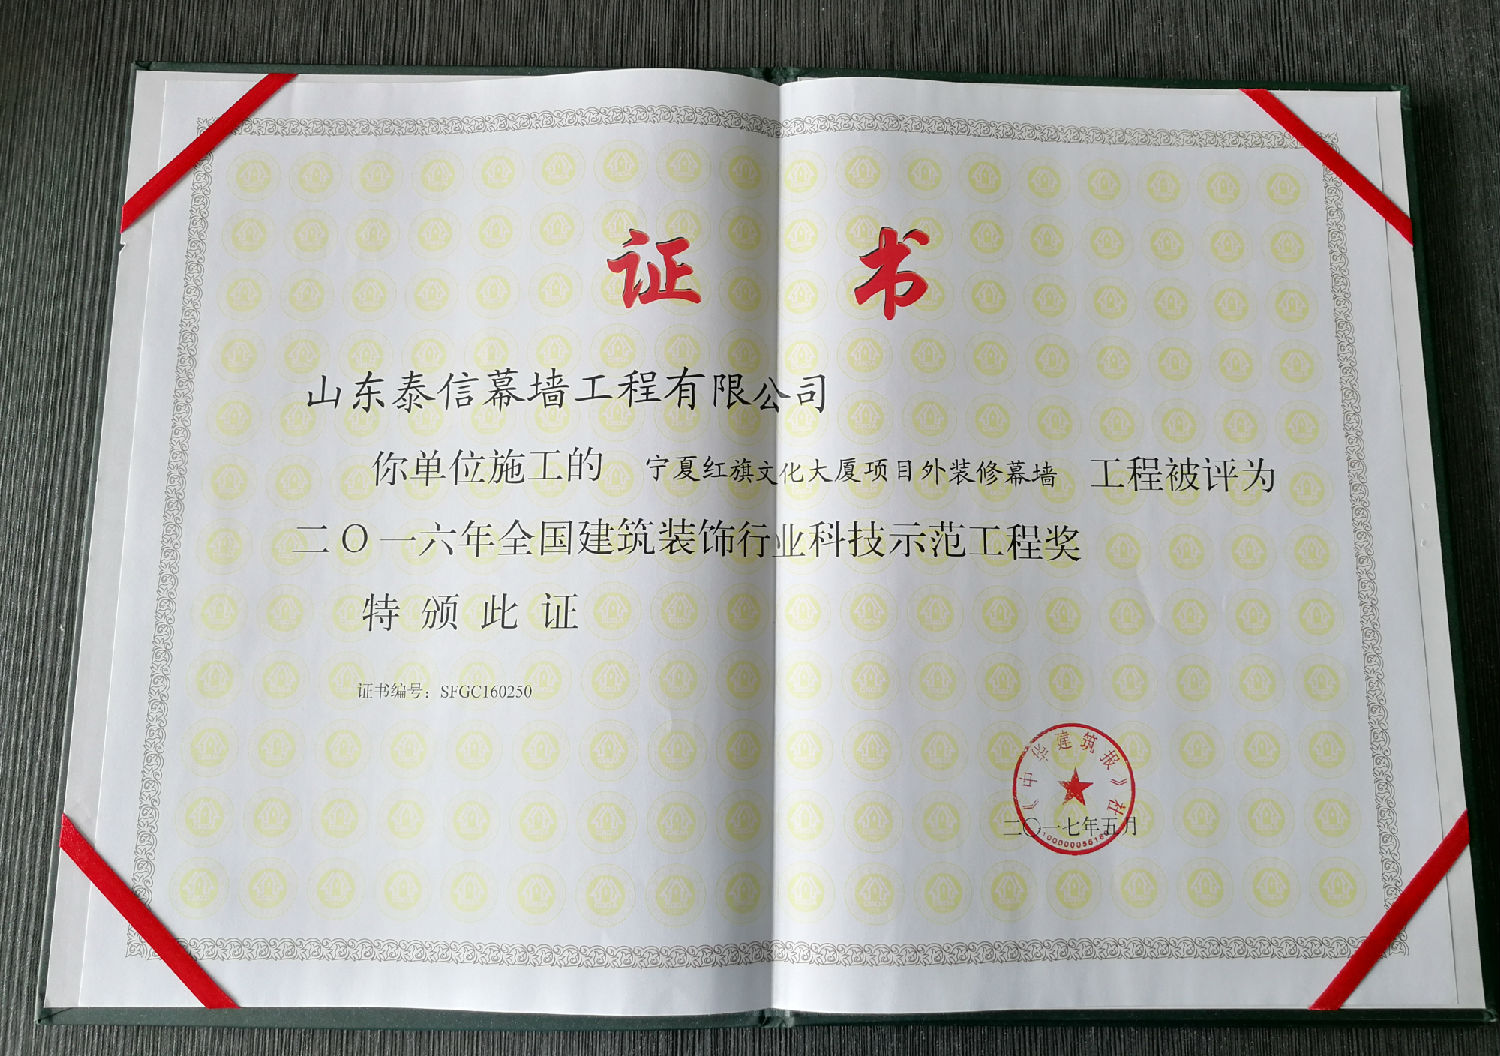 证书
山东泰信幕墙工程有限公司
你单位施工的 宁夏红旗文化大厦项目外装修幕墙 工程被评为
二〇一六年全国建筑装饰行业科技示范工程奖
特颁此证
证书编号：SFGC160250
《中华建筑报》社
二〇一七年五月